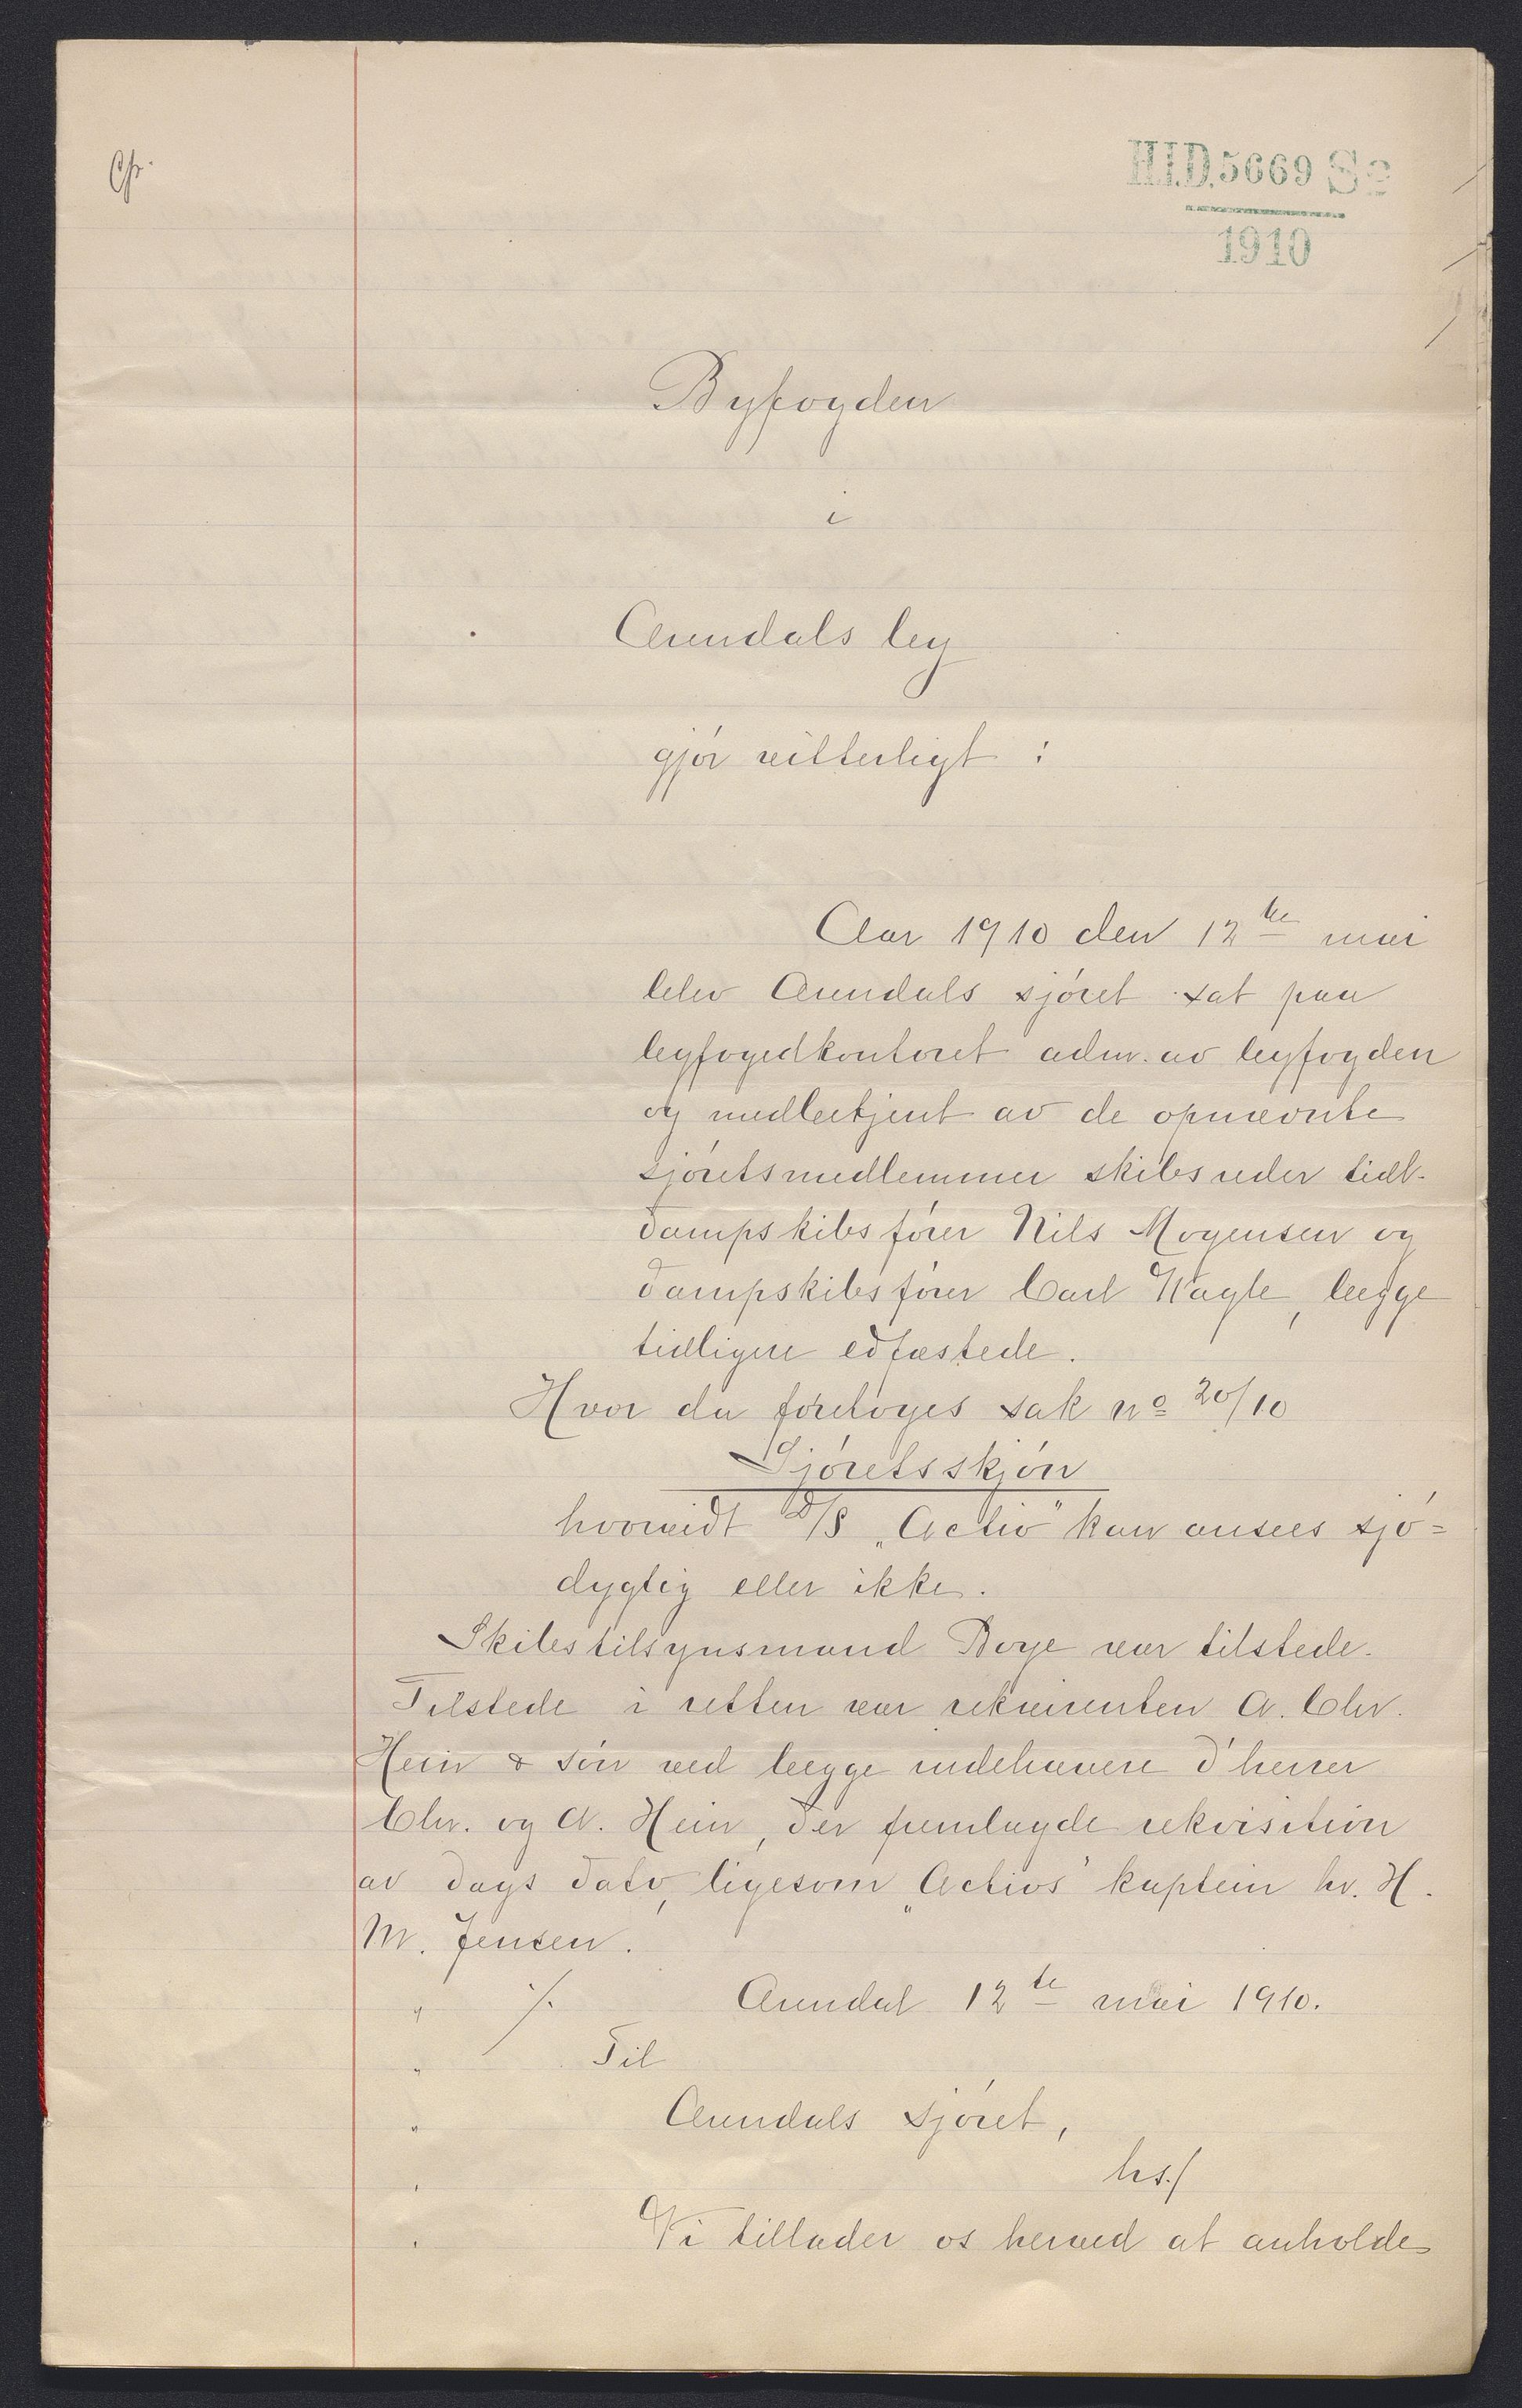 Chr.
H.I.D. 5669 Se
1910
Byfogden
i
Arendals by
gjør vitterligt :
Aar 1910 den 12te mai
blev Arendals sjøret sat paa
byfogedkontoret adm. av byfogden
og medbetjent av de opnævnte
sjøretsmedlemmer skibsreder tidl.
dampskibsfører Nils Mogensen og
dampskibsfører Carl Nagle, begge
tidligere edfæstede.
Hvor da foretoges sak no 20/10
Sjøretsskjøn
hvorvidt D/S „Activ“ kan ansees sjø=
dygtig eller ikke.
Skibstilsynsmand Boye var tilstede.
Tilstede i retten var rekvirenten A. Chr.
Hein & søn ved begge indehavere d'herrer
Chr. og A. Hein, der fremlagde rekvisition
av dags dato, ligesom „Activs“ kaptein hr. H.
M. Jensen.
" ·/. Arendal 12te mai 1910.
" Til
" Arendals sjøret,
" hs./
" Vi tillader os herved at anholde